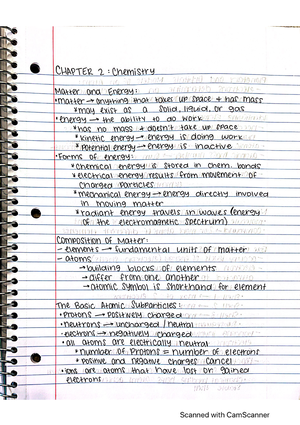 CHAPTER 2: Chemistry
Matter and Energy:
•Matter → anything that takes up space + has mass
*may exist as a solid, liquid, or gas
•energy → the ability to do work
*has no mass + doesn't take up space
*kinetic energy → energy is doing work
*Potential energy → energy is inactive
•Forms of energy:
*chemical energy is stored in chem. bonds
*electrical energy results from movement of
charged particles
*mechanical energy → energy directly involved
in moving matter
*radiant energy travels in waves (energy
of the electromagnetic spectrum)
Composition of Matter:
- elements → fundamental units of matter
- atoms
→ building blocks of elements
→ differ from one another
→ atomic symbol is shorthand for element
The Basic Atomic Subparticles:
•Protons → positively charged
•neutrons → uncharged / neutral
•electrons → negatively charged
•all atoms are electrically neutral
*number of Protons = number of electrons
*Positive and negative charges cancel
•ions are atoms that have lost or gained
electrons
Scanned with CamScanner